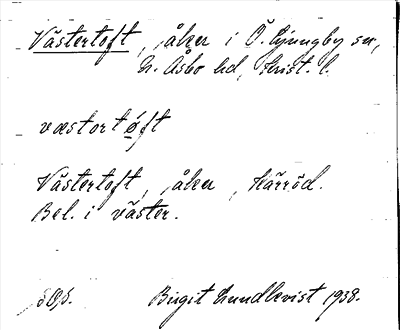 Västertoft, åker i Ö. Ljungby sn,
N. Åsbo hd, Krist. l.
væstortǫft
Västertoft, åker, Härröd.
Bel. i väster.
Birgit Lundkvist 1938.